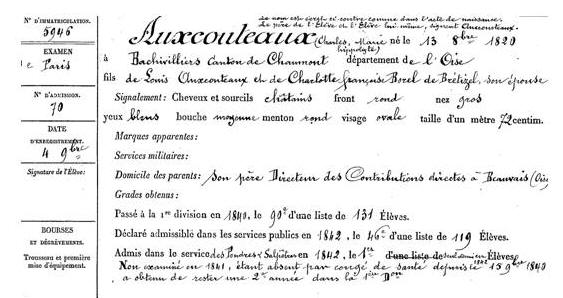 N° D'IMMATRICULATION.
5946
EXAMEN
de Paris
N° D'ADMISSION.
70
DATE
D'ENREGISTREMENT.
4 9bre
Signature de l'Élève:
BOURSES
ET DÉGRÈVEMENTS.
Trousseau et première
mise d'équipement.
Le nom est écrit ci-contre comme dans l'acte de naissance.
Le père de l'Élève et l'Élève lui-même, signent Auxcousteaux.
Auxcouteaux (Charles, Marie né le 13 8bre 1820
hippolyte)
à Bachivilliers Canton de Chaumont département de l'Oise
fils de Louis Auxcouteaux et de Charlotte françoise Borel de Brétizel, son épouse
Signalement: Cheveux et sourcils chatains front rond nez gros
yeux bleus bouche moyenne menton rond visage ovale taille d'un mètre 72 centim.
Marques apparentes:
Services militaires:
Domicile des parents: Son père Directeur des Contributions directes à Beauvais (Oise
Grades obtenus:
Passé à la 1re division en 1840, le 90e d'une liste de 131 Élèves.
Déclaré admissible dans les services publics en 1842, le 46e d'une liste de 119 Élèves.
Admis dans le service des Poudres & Salpêtres en 1842, le 1er d'une liste de Élèves
Non examiné en 1841, étant absent par congé de santé depuis le 15 9bre 1840
a obtenu de rester une 2e année dans la 1re Don